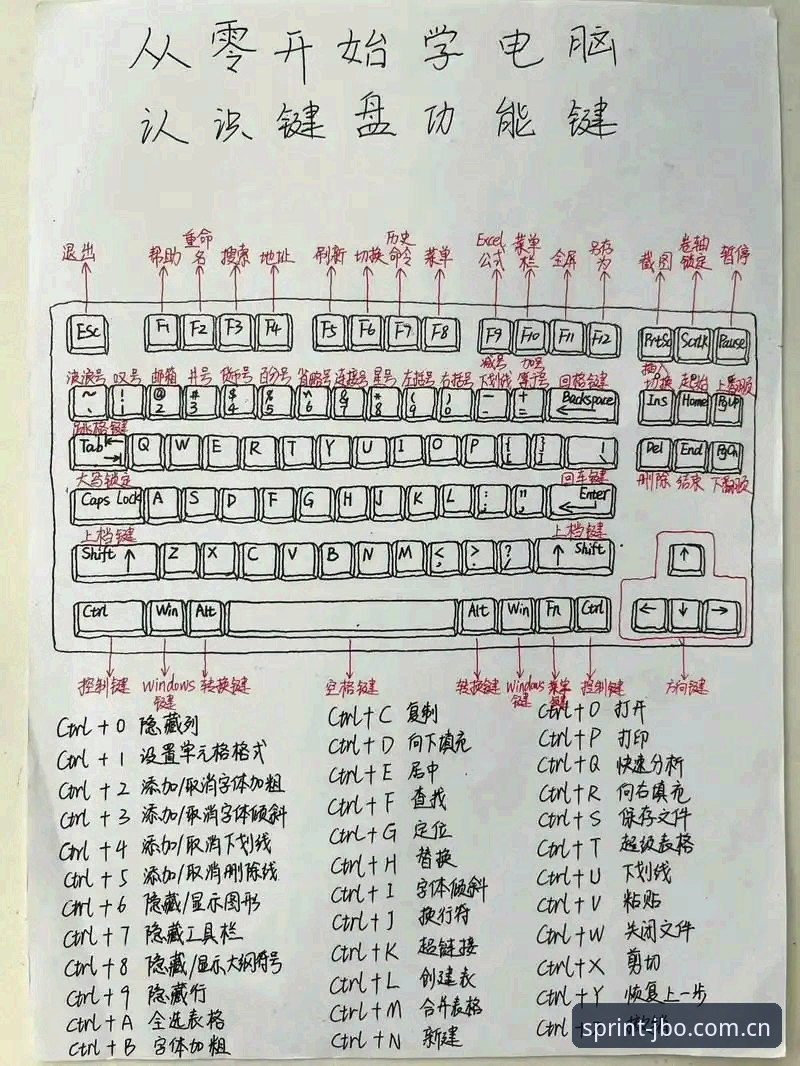 从零开始学电脑
认识键盘功能键
退出 帮助 重命名 搜索 地址 刷新 切换 历史命令 菜单 Excel公式 菜单栏 全屏 另存为 截图 卷轴锁定 暂停
Esc F1 F2 F3 F4 F5 F6 F7 F8 F9 F10 F11 F12 PrtSc ScrLK Pause
波浪号 叹号 邮箱 井号 货币号 百分号 省略号 连接号 星号 左括号 右括号 减号下划线 加号等号 回格键 插入切换 上翻页
~ ` ! 1 @ 2 # 3 $ 4 % 5 ^ 6 & 7 * 8 ( 9 ) 0 - - + = Backspace Ins Home PgUp
跳格键
Tab Q W E R T Y U I O P { [ } ] | \ Del End PgDn
大写锁定 回车键 删除 结束 下翻页
Caps Lock A S D F G H J K L : ; " , Enter
上档键 上档键
Shift ↑ Z X C V B N M < , > . ? / ↑ Shift ↑
Ctrl Win Alt Alt Win Fn Ctrl ← ↓ →
控制键 Windows键 转换键 空格键 转换键 Windows键 菜单键 控制键 方向键
Ctrl + 0 隐藏列
Ctrl + 1 设置单元格格式
Ctrl + 2 添加/取消字体加粗
Ctrl + 3 添加/取消字体倾斜
Ctrl + 4 添加/取消下划线
Ctrl + 5 添加/取消删除线
Ctrl + 6 隐藏/显示图形
Ctrl + 7 隐藏工具栏
Ctrl + 8 隐藏/显示大纲符号
Ctrl + 9 隐藏行
Ctrl + A 全选表格
Ctrl + B 字体加粗
Ctrl + C 复制
Ctrl + D 向下填充
Ctrl + E 居中
Ctrl + F 查找
Ctrl + G 定位
Ctrl + H 替换
Ctrl + I 字体倾斜
Ctrl + J 换行符
Ctrl + K 超链接
Ctrl + L 创建表
Ctrl + M 合并表格
Ctrl + N 新建
Ctrl + O 打开
Ctrl + P 打印
Ctrl + Q 快速分析
Ctrl + R 向右填充
Ctrl + S 保存文件
Ctrl + T 超级表格
Ctrl + U 下划线
Ctrl + V 粘贴
Ctrl + W 关闭文件
Ctrl + X 剪切
Ctrl + Y 恢复上一步
Ctrl
sprint-jbo.com.cn